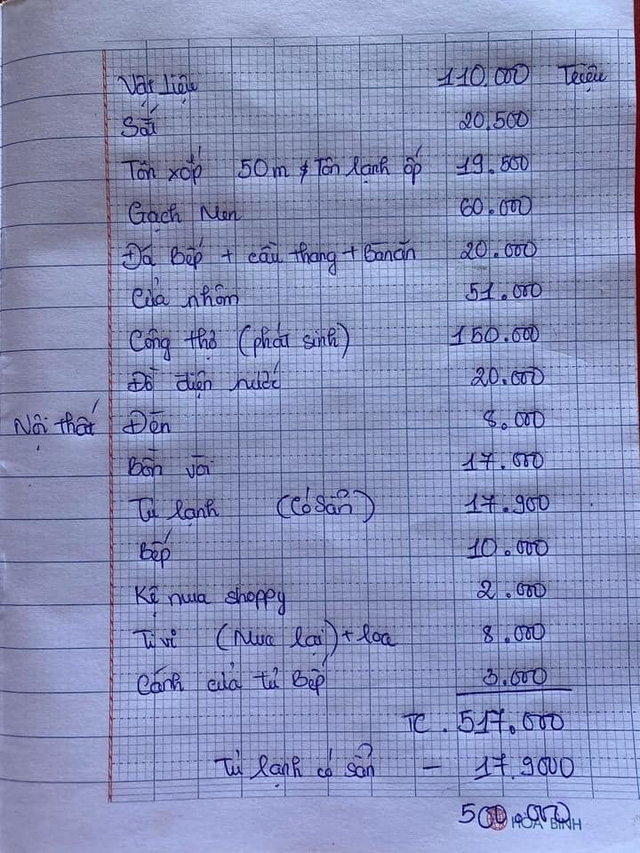 Vật liệu 110.000 Triệu
Sắt 20.500
Tôn xốp 50m + Tôn lạnh ốp 19.500
Gạch Men 60.000
Đá Bếp + cầu thang + Bàn ăn 20.000
Cửa nhôm 51.000
Công thợ (phát sinh) 150.000
Đồ điện nước 20.000
Nội thất Đèn 8.000
Bồn vòi 17.000
Tủ lạnh (Có Sẵn) 17.900
Bếp 10.000
Kệ mua shoppy 2.000
Ti vi (Mua lại) + loa 8.000
Cánh cửa tủ Bếp 3.000
TC. 517.000
Tủ lạnh có sẵn - 17.9000
500.000
HOA BINH